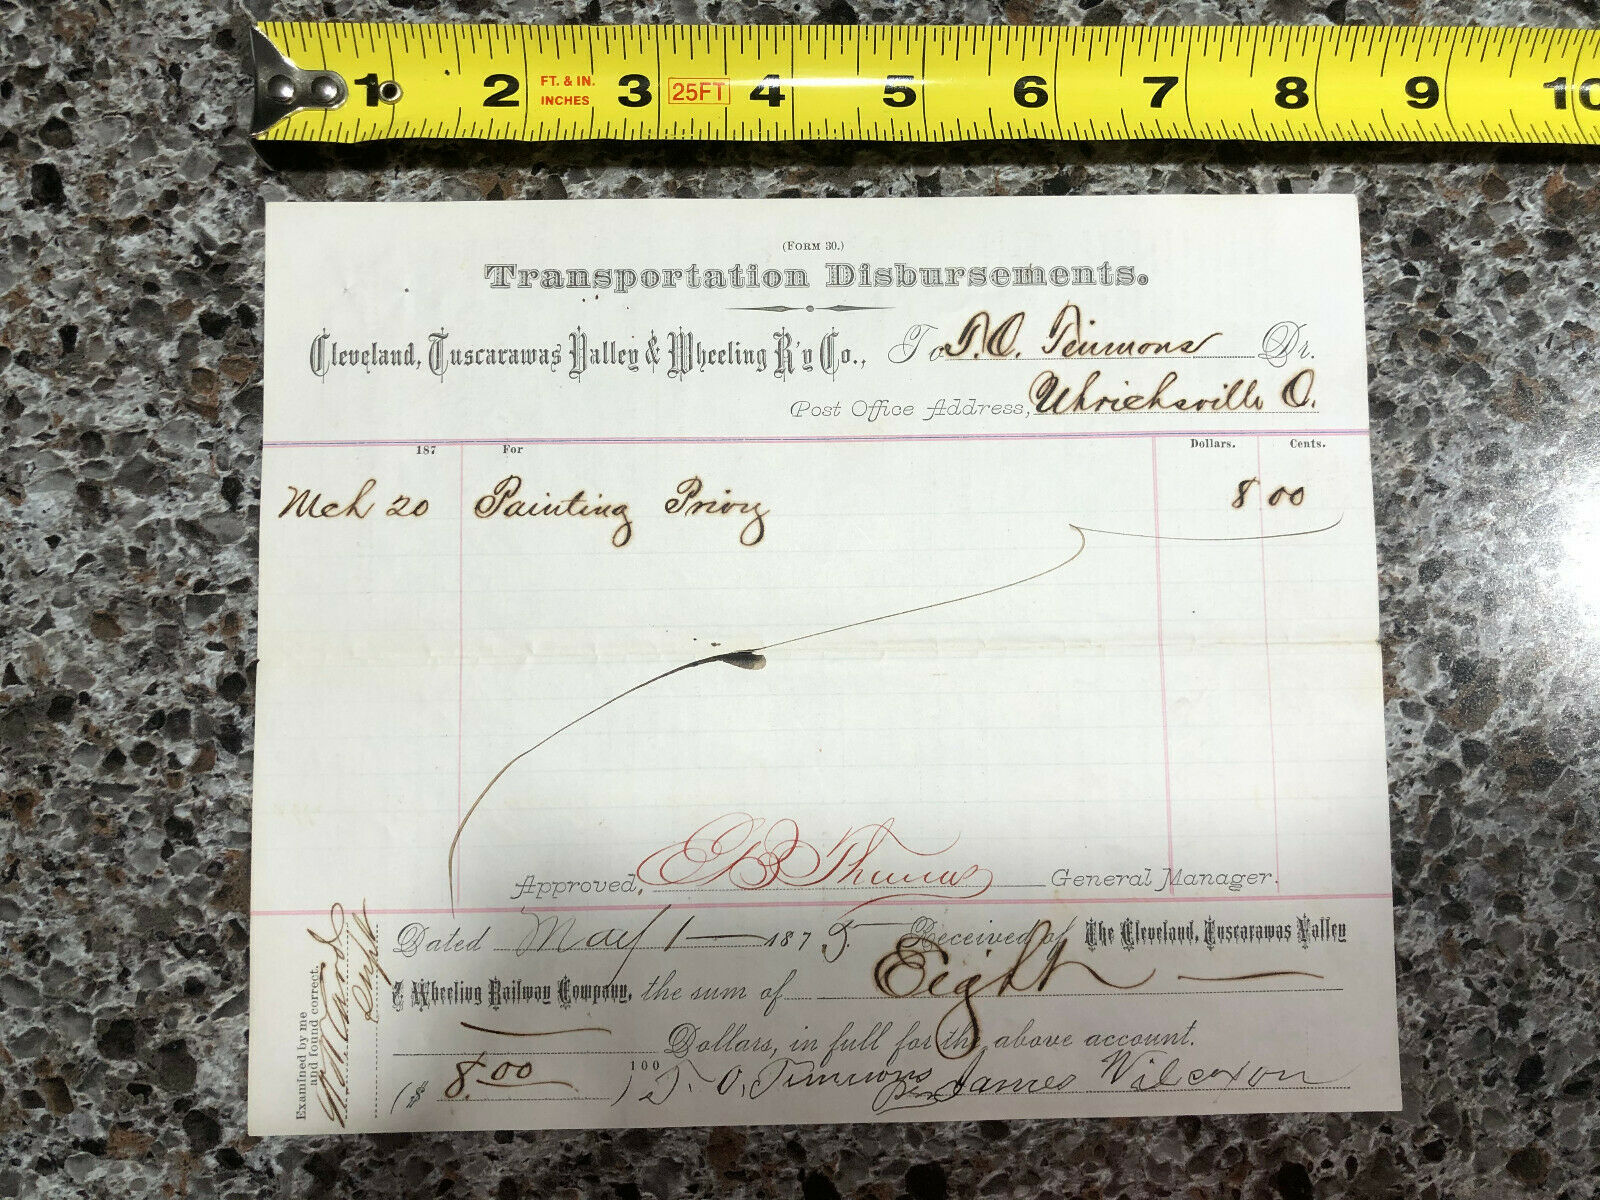 1 2 FT. & IN. INCHES 3 25FT 4 5 6 7 8 9 10
(FORM 30.)
Transportation Disbursements.
Cleveland, Tuscarawas Valley & Wheeling R'y Co., To T. O. Timmons Dr.
Post Office Address, Uhrichsville O.
187 For Dollars. Cents.
Mch 20 Painting Privy 8 00
Approved, General Manager.
Dated May 1 1875. Received of The Cleveland, Tuscarawas Valley
& Wheeling Railway Company, the sum of Eight
Dollars, in full for the above account.
($ 8.00 ) 100 T. O. Timmons
Per James Wilcoxon
Examined by me
and found correct.
Supt